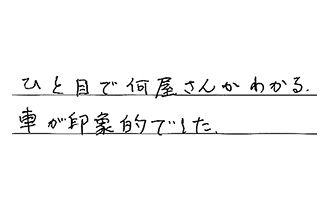 ひと目で何屋さんかわかる.
車が印象的でした.